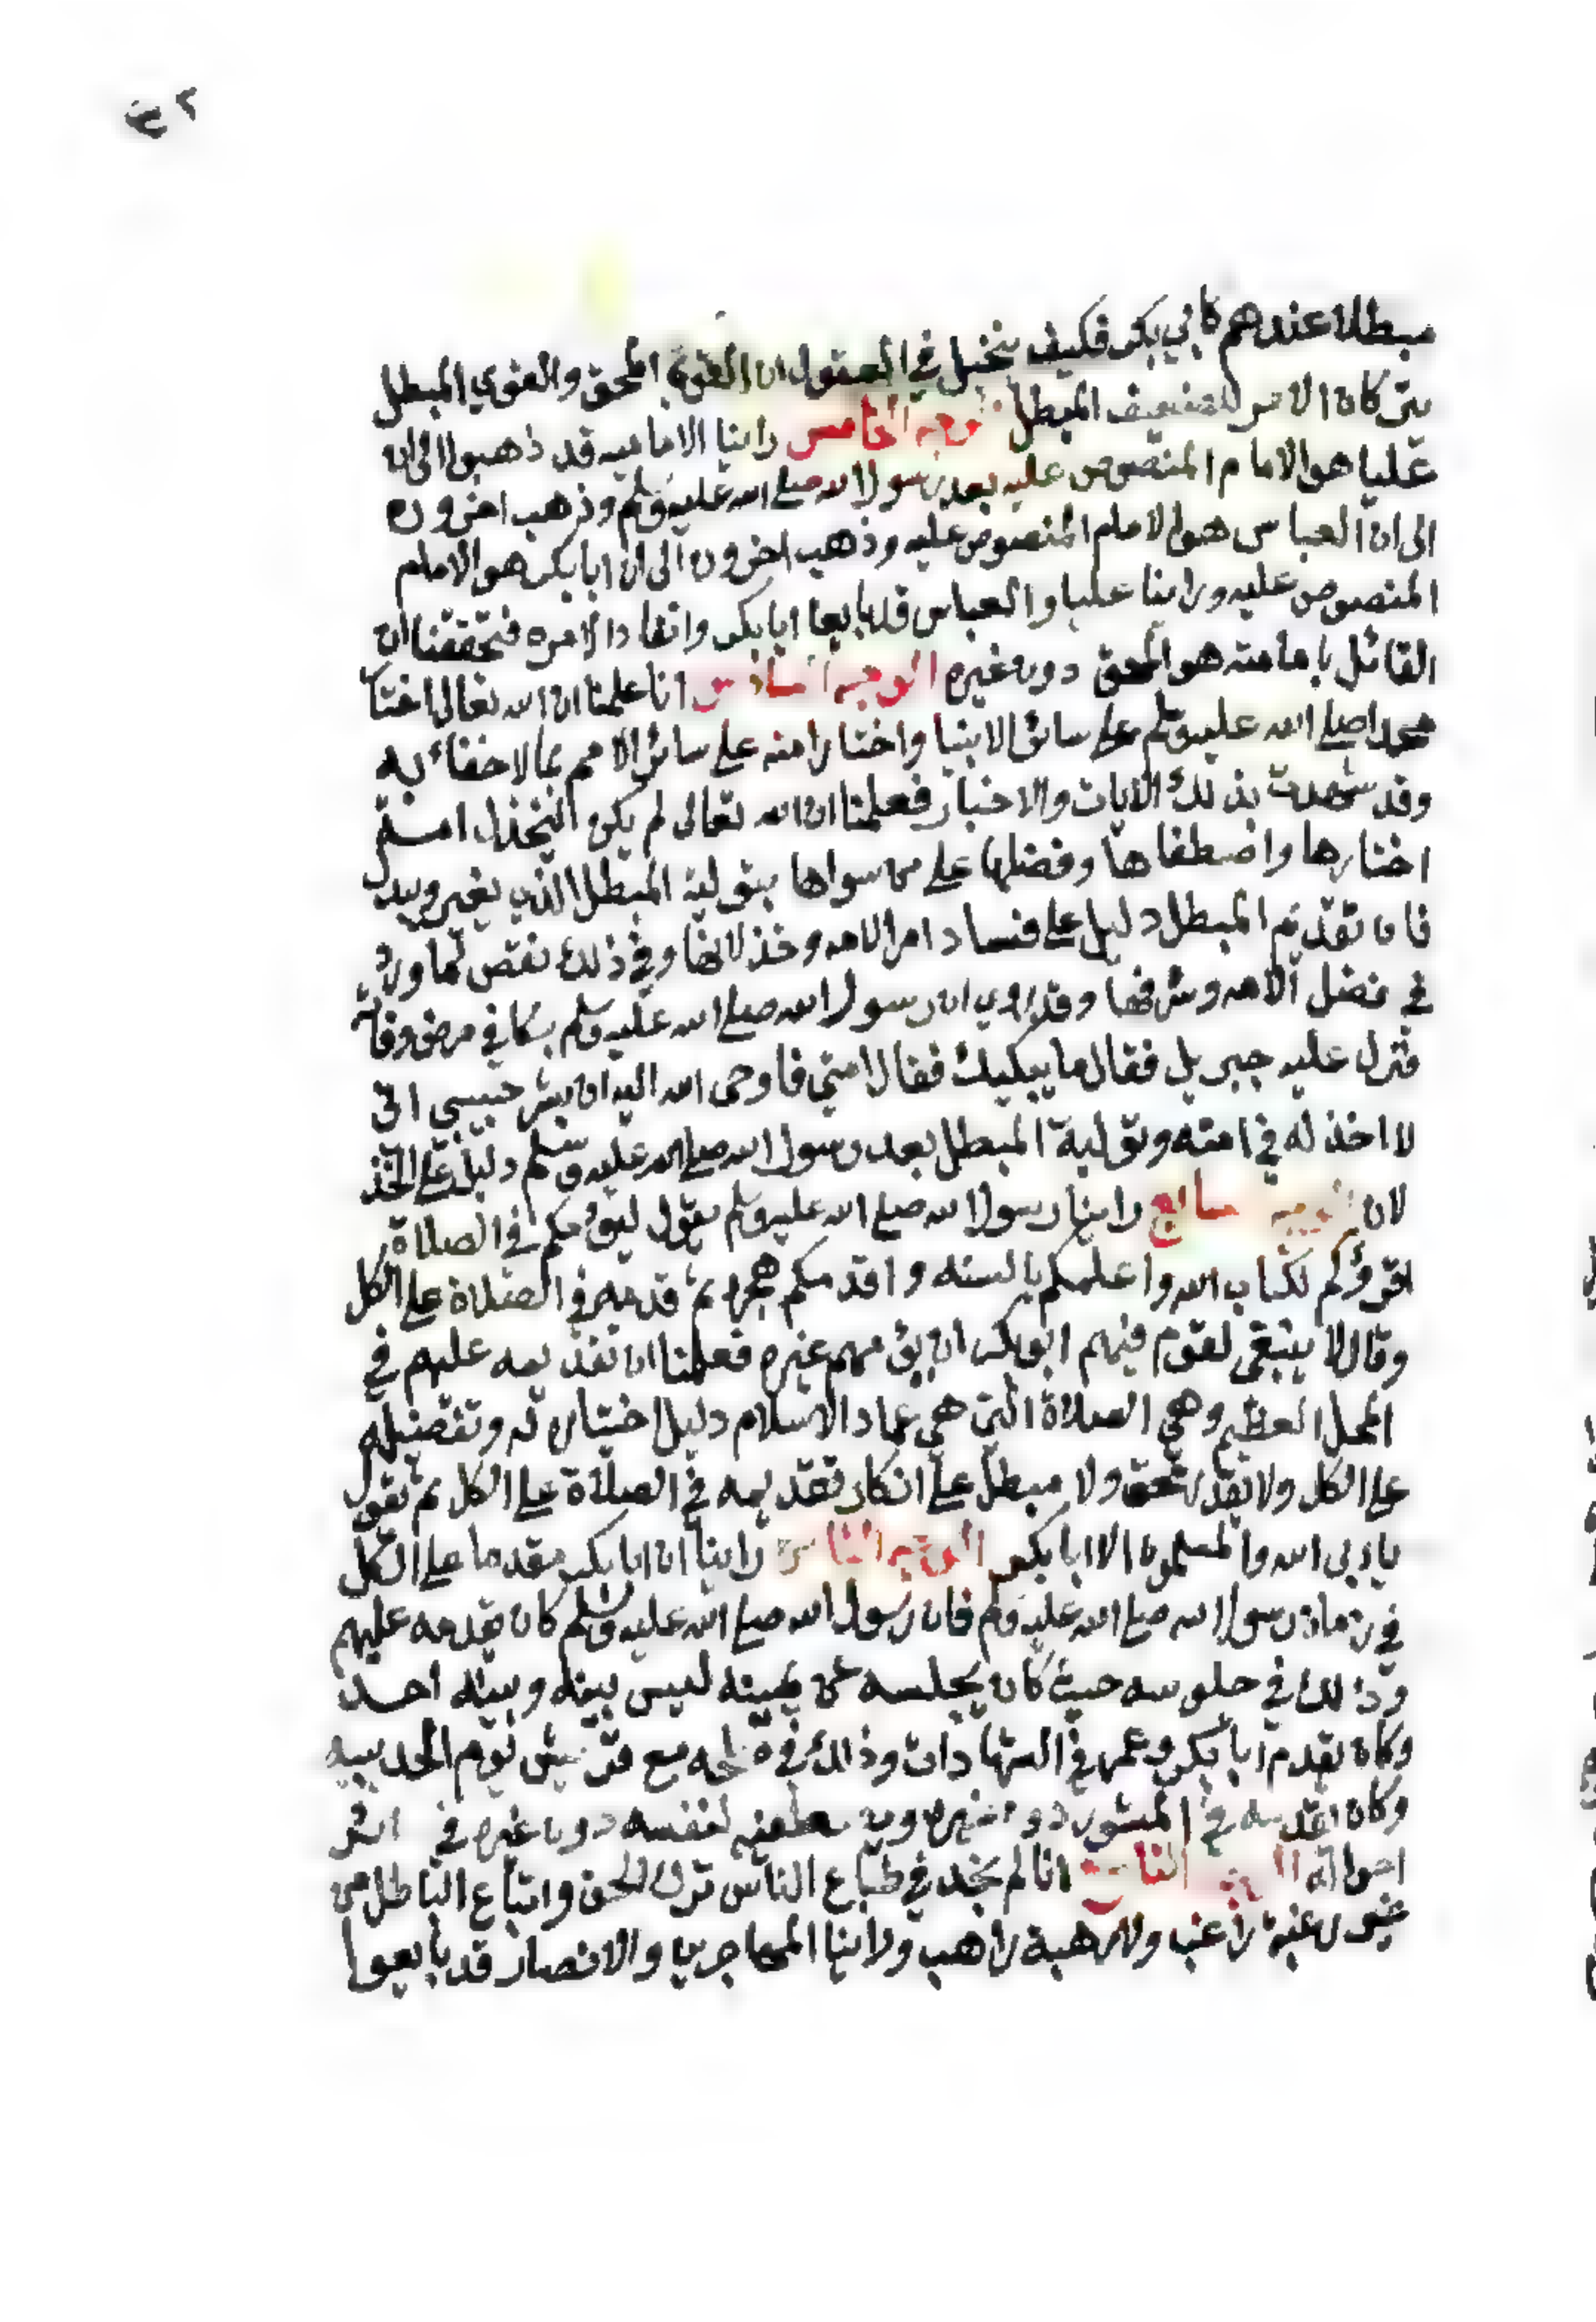 ٤٢
مبطلا عندهم كابي بكر فكيف يتخيل في العقول ان القوي المحق والقوي المبطل
يتركان الامر للضعيف المبطل الوجه الخامس راينا الاماميه قد ذهبوا الى ان
عليا هو الامام المنصوص عليه بعد رسول الله صلى الله عليه وسلم وذهب اخرون
الى ان العباس هو الامام المنصوص عليه وذهب اخرون الى ان ابا بكر هو الامام
المنصوص عليه وراينا عليا والعباس قد بايعا ابا بكر وانقادا لامره فتحققنا ان
القائل بامامته هو المحق دون غيره الوجه السادس انا علمنا ان الله تعالى اختا
محمدا صلى الله عليه وسلم على سائر الانبيا واختار امته على سائر الامم بما لا خفاء به
وقد شهدت بذلك الايات والاخبار فعلمنا ان الله تعالى لم يكن ليخذل امة
اختارها واصطفاها وفضلها على من سواها بتولية المبطل الذي يغير ويبدل
فان تقديم المبطل دليل على فساد امر الامه وخذلانها وفي ذلك نقص لما ورد
في فضل الامه وشرفها وقد روي ان رسول الله صلى الله عليه وسلم بكا في مرض وفاته
فنزل عليه جبريل فقال ما يبكيك فقال امتي فاوحى الله اليه ان بشر حبيبي اني
لا اخذله في امته وتولية المبطل بعد رسول الله صلى الله عليه وسلم دليل على الخذ
لان الوجه السابع راينا رسول الله صلى الله عليه وسلم يقول ليؤمكم في الصلاة
اقرؤكم لكتاب الله واعلمكم بالسنه واقدمكم هجرة ثم قدمه في الصلاة على الكل
وقال لا ينبغي لقوم فيهم ابو بكر ان يؤمهم غيره فعلمنا ان تقديمه عليهم في
المحل العظيم وهي الصلاة التي هي عماد الاسلام دليل اختياره له وتفضيله
على الكل ولا يقدر محق ولا مبطل على انكار تقديمه في الصلاة على الكل ثم يقول
يابى الله والمسلمون الا ابا بكر الوجه الثامن راينا ان ابا بكر مقدما على الكل
في زمان رسول الله صلى الله عليه وسلم فان رسول الله صلى الله عليه وسلم كان يقدمه عليهم
وذلك في جلوسه حيث كان يجلسه عن يمينه ليس بينه وبينه احد
وكان يقدم ابا بكر وعمر في الشهادات وذلك في صلحه مع قريش يوم الحديبيه
وكان يقدمه في المشوره دون غيره وبه يصطفيه لنفسه دون غيره في اكثر
احواله الوجه التاسع انا لم نجد في طباع الناس ترك الحق واتباع الباطل من
غير رغبة راغب ولا رهبة راهب وراينا المهاجرين والانصار قد بايعوا